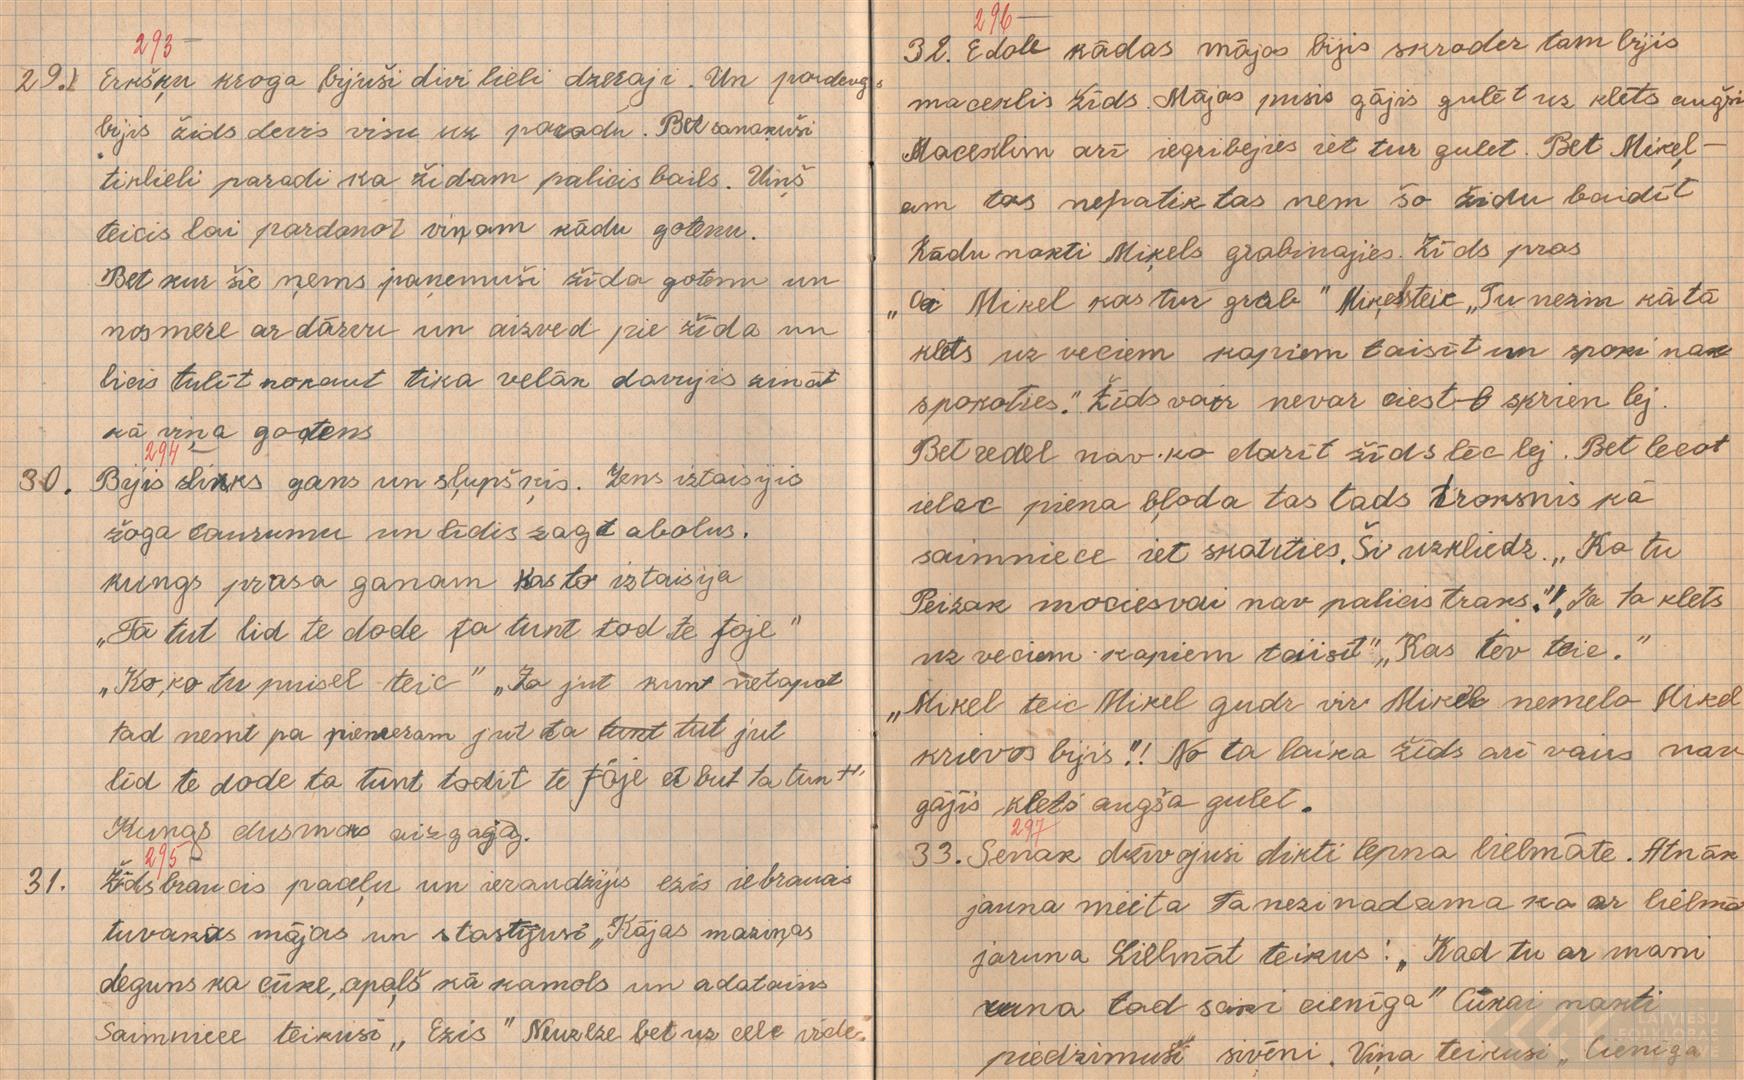 293 —
29. Erkšķu kroga bijuši divi lieli dzeraji. Un pardevejs
bijis žids devis visu uz paradu. Bet sanakuši
tiklieli paradi ka židam palicis bails. Viņš
teicis lai pardanot viņam kādu gotenu.
Bet kur šie ņems paņemuši žida gotenu un
nosmere ar dārvu un aizved pie žīda un
licis tulīt nokaut tika velāk davujis zināt
kā viņa gotens
294 —
30. Bijis slinks gans un sļupšķis. Zens iztaisijis
žoga caurumu un līdis zagt abolus.
kungs prasa ganam kas to iztaisija
„Tā tut lid te dode ta tunt tod te foje"
„Ko, ko tu puisel teic" „Ja jut kunt netapat
tad nemt pa piemeram jut ta tunt tut jut
līd te dode ta tunt todit te fōje et but ta tunt".
Kungs dusmas aizgajag.
295 —
31. Žīds braucis paceļu un ieraudzijis ezis iebraucas
tuvakās mājas un stastījusi „Kājas maziņas
deguns ka cūke, apaļš kā kamols un adatains
Saimniece teikusi „Ezis" Neuzlze bet uz cele vīde.
296 —
32. Edole kādas mājas bijis skroder tam bijis
maceklis žīds. Mājas puisis gājis gulēt uz klēts augši
Maceklim arī iegribejies iet tur gulet. Bet Miķeļ—
am tas nepatik tas nem šo židu baidīt
Kādu nakti Miķels grabinajies. Žīds pras
„Oi Mikel kas tur grab" Miķels teic „Tu nezin kā tā
klets uz veciem kapiem taisīt un spoki nak
spokoties." Žīds vair nevar ciest skrien lej.
Bet redel nav ko darīt žīds lēc lej. Bet lecot
ielec piena bļoda tas tads troksnis kā
saimniece iet skatities. Ši uzkliedz. „Ka tu
Peizak mociesvai nav palicis traks."! „Ja ta klets
uz veciem kapiem taiisīt" „Kas tev teic."
„Mikel teic Mikel gudr vir Mikel nemelo Mikel
krievos bijis"! No ta laika žīds arī vairs nav
gājis klets augša gulet.
297
33. Senak dzīvojusi dikti lepna lielmāte. Atnāk
jauna meita Ta nezinadama ka ar lielmā
jaruna Lielmāt teikus: „Kad tu ar mani
runa tad saki cienīga" Cūkai nakti
piedzimuši sivēni. Viņa teikusi „Cieniga
LATVIEŠU
FOLKLORAS